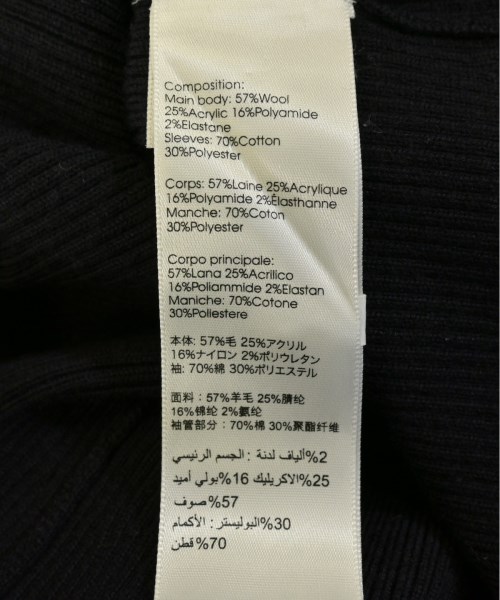 Composition:
Main body: 57%Wool
25%Acrylic 16%Polyamide
2%Elastane
Sleeves: 70%Cotton
30%Polyester
Corps: 57%Laine 25%Acrylique
16%Polyamide 2%Élasthanne
Manche: 70%Coton
30%Polyester
Corpo principale:
57%Lana 25%Acrilico
16%Poliammide 2%Elastan
Maniche: 70%Cotone
30%Poliestere
本体: 57%毛 25%アクリル
16%ナイロン 2%ポリウレタン
袖: 70%綿 30%ポリエステル
面料: 57%羊毛 25%腈纶
16%锦纶 2%氨纶
袖管部分: 70%棉 30%聚酯纤维
2%ألياف لدنة : الجسم الرئيسي
25%الاكريليك 16%بولي أميد
57%صوف
30%البوليستر: الأكمام
70%قطن